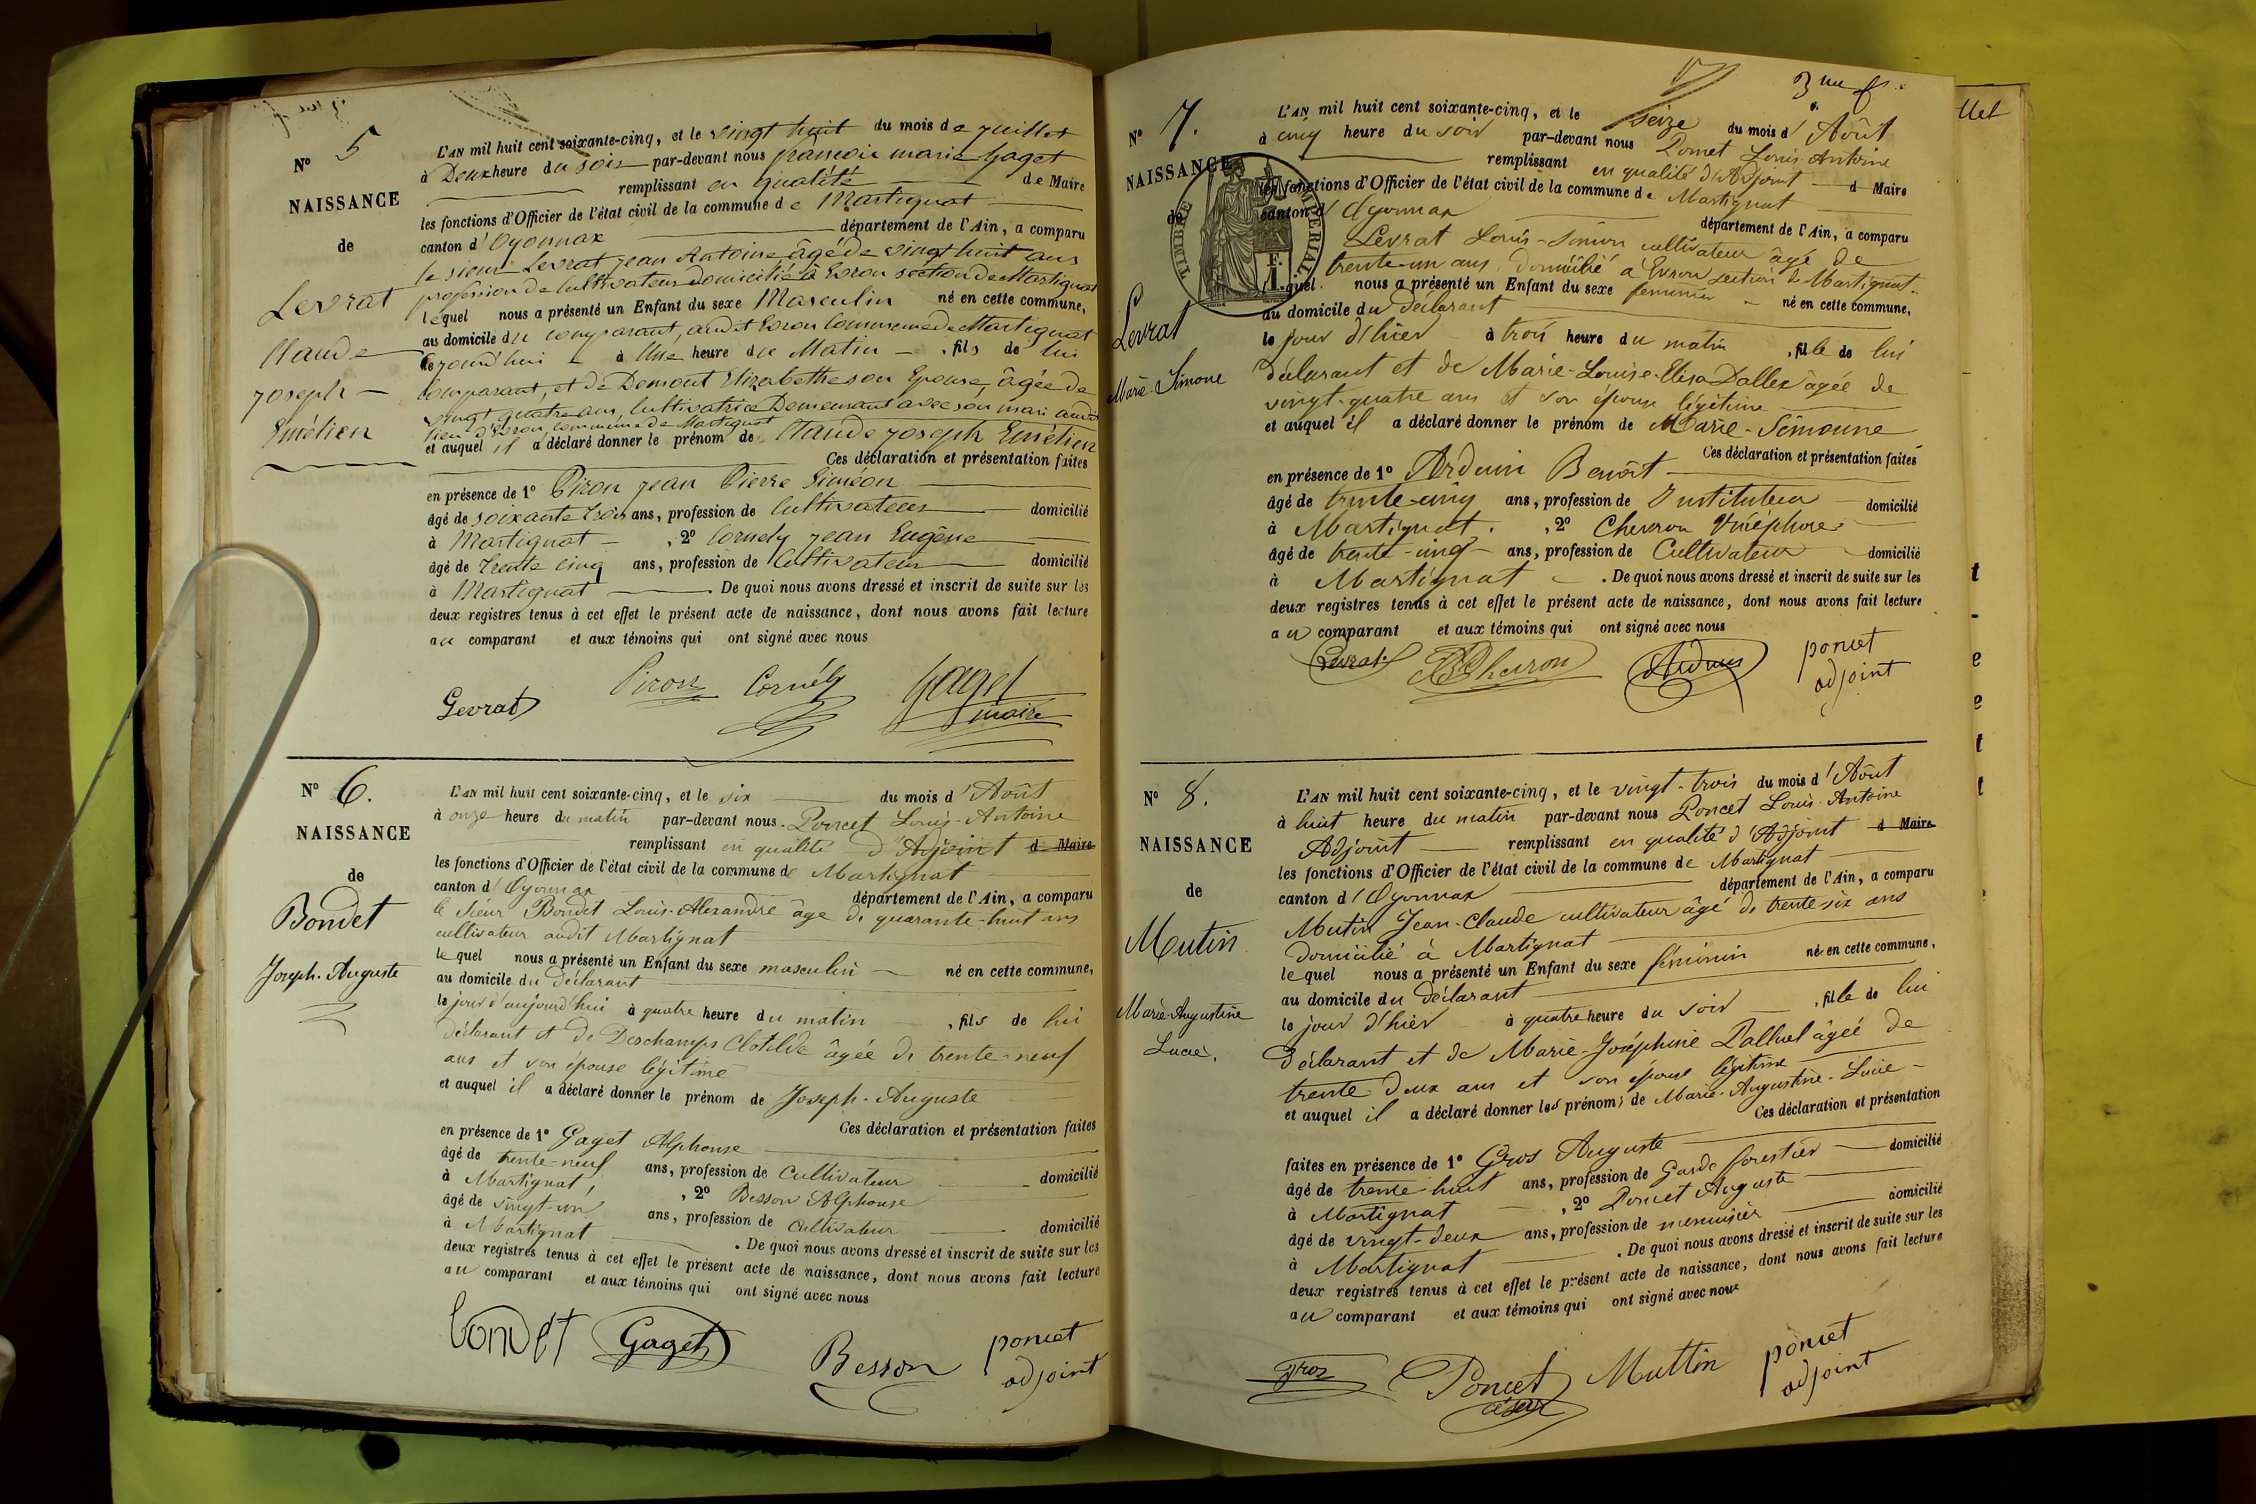 N° 5
NAISSANCE
de
Levrat
Claude
Joseph
Emélien
L'AN mil huit cent soixante-cinq, et le vingt huit du mois de juillet
à Deux heure du soir par-devant nous françois marie Gaget
remplissant en qualité de Maire
les fonctions d'Officier de l'état civil de la commune de Martignat
canton d'Oyonnax département de l'Ain, a comparu
le sieur Levrat jean Antoine âgé de vingt huit ans
profession de Cultivateur domicilié à Evron section de Martignat
lequel nous a présenté un Enfant du sexe Masculin né en cette commune,
au domicile du comparant, audit Evron Commune de Martignat
à Une heure du Matin , fils de lui
comparant, et de Domont Elizabeth son Epouse, âgée de
vingt quatre ans, Cultivatrice Demeurant avec son mari audit
lieu d'Evron, commune de Martignat
et auquel il a déclaré donner le prénom de Claude joseph Emélien
Ces déclaration et présentation faites
en présence de 1° Piron jean Pierre Siméon
âgé de soixante trois ans, profession de Cultivateur domicilié
à Martignat , 2° Cornely jean Eugène
âgé de Trente cinq ans, profession de Cultivateur domicilié
à Martignat . De quoi nous avons dressé et inscrit de suite sur les
deux registres tenus à cet effet le présent acte de naissance, dont nous avons fait lecture
au comparant et aux témoins qui ont signé avec nous
Levrat Piron Cornély Gaget
maire
N° 6.
NAISSANCE
de
Bondet
Joseph-Auguste
L'AN mil huit cent soixante-cinq, et le six du mois d'Août
à onze heure du matin par-devant nous Poncet Louis-Antoine
remplissant en qualité d'Adjoint d Maire
les fonctions d'Officier de l'état civil de la commune de Martignat
canton d'Oyonnax département de l'Ain, a comparu
le sieur Bondet Louis-Alexandre âgé de quarante-huit ans
cultivateur audit Martignat
lequel nous a présenté un Enfant du sexe masculin né en cette commune,
au domicile du déclarant
le jour d'aujourd'hui à quatre heure du matin , fils de lui
déclarant et de Deschamps Clotilde âgée de trente-neuf
ans et son épouse légitime
et auquel il a déclaré donner le prénom de Joseph-Auguste
Ces déclaration et présentation faites
en présence de 1° Gaget Alphonse
âgé de trente-neuf ans, profession de Cultivateur domicilié
à Martignat , 2° Besson Alphonse
âgé de vingt-un ans, profession de Cultivateur domicilié
à Martignat . De quoi nous avons dressé et inscrit de suite sur les
deux registres tenus à cet effet le présent acte de naissance, dont nous avons fait lecture
au comparant et aux témoins qui ont signé avec nous
bondet Gaget Besson poncet
adjoint
3me f.
N° 7.
NAISSANCE
de
TIMBRE IMPÉRIAL
Levrat
Marie-Simone
L'AN mil huit cent soixante-cinq, et le seize du mois d'Août
à cinq heure du soir par-devant nous Poncet Louis-Antoine
remplissant en qualité d'Adjoint d Maire
les fonctions d'Officier de l'état civil de la commune de Martignat
canton d'Oyonnax département de l'Ain, a comparu
Levrat Louis-Simon cultivateur âgé de
trente-un ans, domicilié à Evron section de Martignat.
lequel nous a présenté un Enfant du sexe féminin né en cette commune,
au domicile du déclarant
le jour d'hier à trois heure du matin , fille de lui
déclarant et de Marie-Louise-Elisa Dallex âgée de
vingt-quatre ans et son épouse légitime
et auquel il a déclaré donner le prénom de Marie-Simonne
Ces déclaration et présentation faites
en présence de 1° Arduin Benoît
âgé de trente-cinq ans, profession de Instituteur domicilié
à Martignat. , 2° Chevron Nicéphore
âgé de trente-cinq ans, profession de Cultivateur domicilié
à Martignat . De quoi nous avons dressé et inscrit de suite sur les
deux registres tenus à cet effet le présent acte de naissance, dont nous avons fait lecture
au comparant et aux témoins qui ont signé avec nous
Levrat Chevron Arduin poncet
adjoint
N° 8.
NAISSANCE
de
Mutin
Marie-Augustine
Lucie.
L'AN mil huit cent soixante-cinq, et le vingt-trois du mois d'Août
à huit heure du matin par-devant nous Poncet Louis-Antoine
Adjoint remplissant en qualité d'Adjoint d Maire
les fonctions d'Officier de l'état civil de la commune de Martignat
canton d'Oyonnax département de l'Ain, a comparu
Mutin Jean-Claude cultivateur âgé de trente-six ans
domicilié à Martignat
lequel nous a présenté un Enfant du sexe féminin né en cette commune,
au domicile du déclarant
le jour d'hier à quatre heure du soir , fille de lui
déclarant et de Marie-Joséphine Palluel âgée de
trente-deux ans et son épouse légitime
et auquel il a déclaré donner les prénoms de Marie-Augustine-Lucie
Ces déclaration et présentation
faites en présence de 1° Gros Auguste
âgé de trente-huit ans, profession de Garde forestier domicilié
à Martignat , 2° Poncet Auguste
âgé de vingt-deux ans, profession de menuisier domicilié
à Martignat . De quoi nous avons dressé et inscrit de suite sur les
deux registres tenus à cet effet le présent acte de naissance, dont nous avons fait lecture
au comparant et aux témoins qui ont signé avec nous
gros Poncet Muttin poncet
adjoint